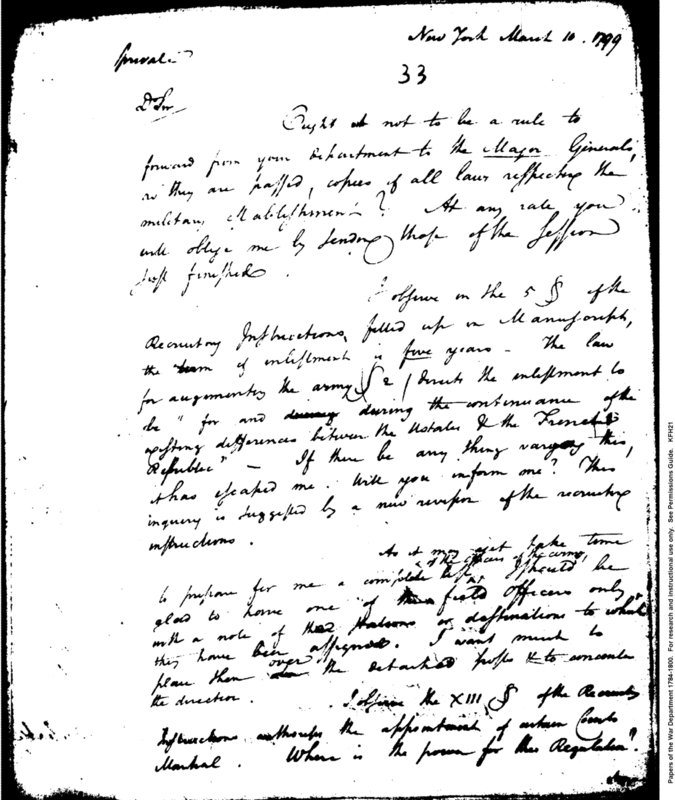 New York March 10. 1799
private
33
Dr Sir
Ought it not to be a rule to
forward from your department to the Major Generals,
as they are passed, copies of all laws respecting the
military establishment? At any rate you
will oblige me by sending those of the Session
just finished.
I observe in the 5 § of the
Recruiting Instructions, filled up in Manuscript,
the term of enlistment is five years – The law
for augmenting the army § 2 directs the enlistment to
be "for and during the continuance of the
existing differences between the Ustates & the French
Republic" – If there be any thing varying this,
it has escaped me. Will you inform me? This
inquiry is suggested by a new revision of the recruiting
instructions.
As it may yet take time
to prepare for me a complete list of the officers of the army, I should be
glad to have one of the field Officers only
with a note of the stations or destinations to which
they have been assigned. I want much to
place them over the detached posts & to concentre
the direction.
I observe the XIII § of the Recruiting
Instructions authorises the appointment of certain Courts
Martial. Where is the power for this Regulation?
Papers of the War Department 1784-1800. For research and instructional use only. See Permissions Guide. KFH21